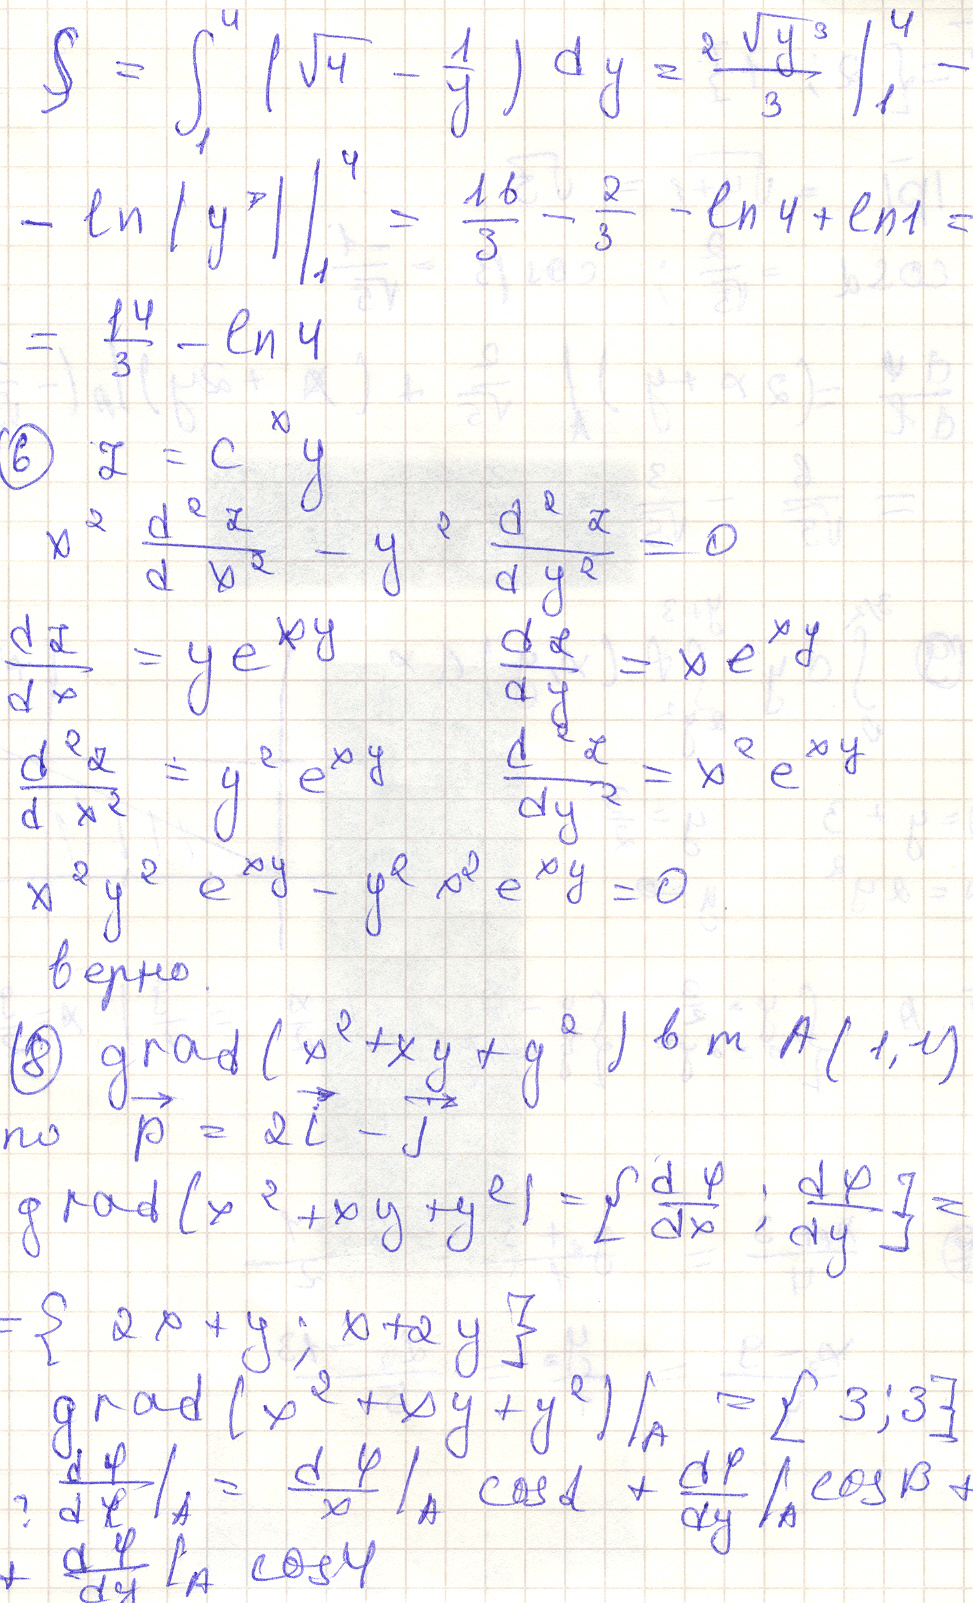 S = ∫₁⁴ (√4 - 1/y) dy = 2√y³/3 |₁⁴ -
- ln|y| |₁⁴ = 16/3 - 2/3 - ln4 + ln1 =
= 14/3 - ln4
⑥ z = e^xy
x² d²z/dx² - y² d²z/dy² = 0
dz/dx = ye^xy dz/dy = xe^xy
d²z/dx² = y² e^xy d²z/dy² = x² e^xy
x²y² e^xy - y² x² e^xy = 0
верно.
⑧ grad(x² + xy + y²) в т A(1,1)
по p⃗ = 2i⃗ - j⃗
grad(x² + xy + y²) = {dφ/dx ; dφ/dy} =
= {2x + y; x + 2y}
grad(x² + xy + y²)|A = {3; 3}
? dφ/dℓ|A = dφ/x|A cosα + dφ/dy|A cosβ +
+ dφ/dy|A cosγ